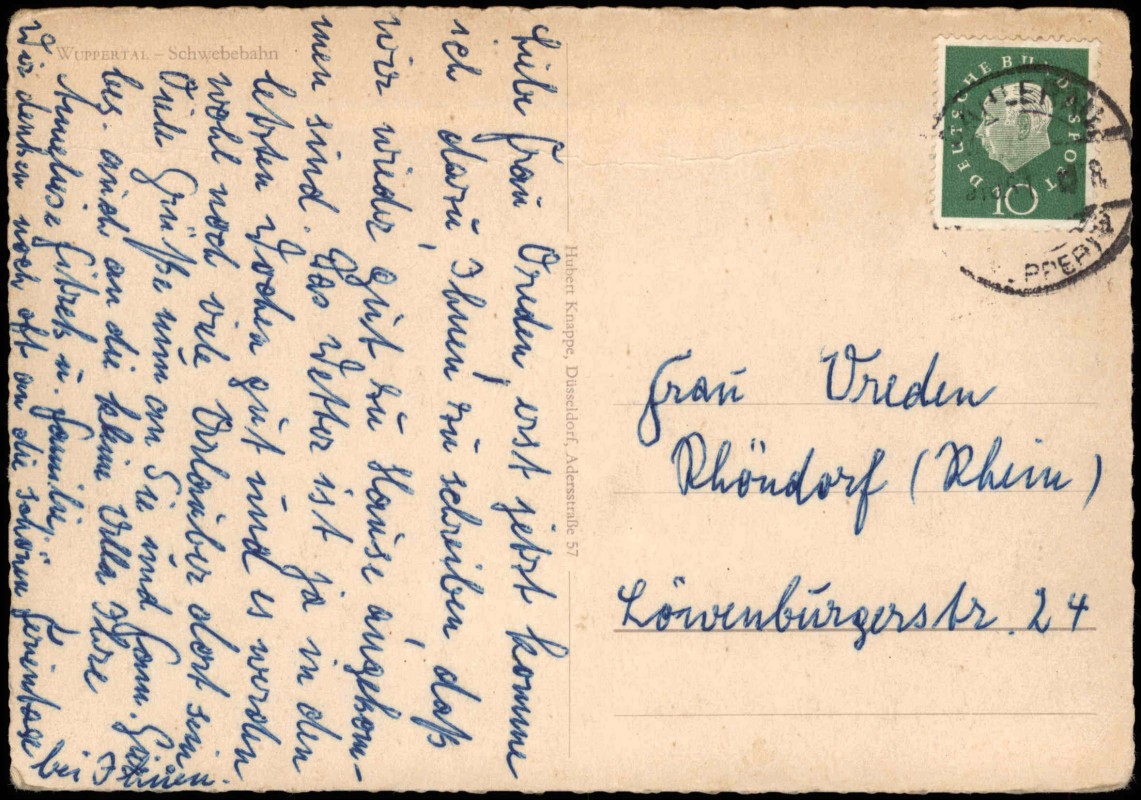 WUPPERTAL – Schwebebahn
Liebe Frau Vreden, erst jetzt komme
ich dazu, Ihnen zu schreiben, daß
wir wieder gut zu Hause angekom-
men sind. Das Wetter ist ja in den
letzten Wochen gut und es werden
wohl noch viele Urlauber dort sein.
Viele Grüße nun an Sie und Fam.
bes. auch an die kleine Ulla Ihre
Anneliese u. Familie.
Wir denken noch oft an die schönen Ferientage
bei Ihnen.
Hubert Knappe, Düsseldorf, Adersstraße 57
DEUTSCHE BUNDESPOST
10
Frau Vreden
Rhöndorf (Rhein)
Löwenburgerstr. 24